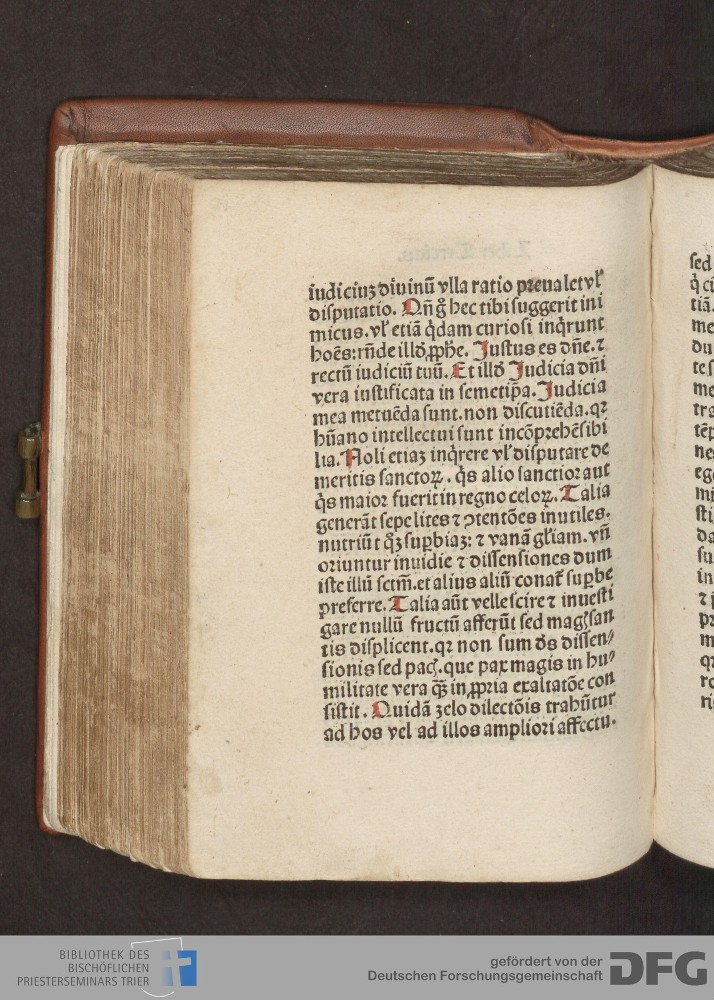 iudiciuʒ diuinū vlla ratio preualet vl̛
disputatio. Qn̄ g̊ hec tibi suggerit ini
micus. vl̛ etiā q̇dam curiosi inq̇runt
hoēs: rn̄de illđ ꝓphe. Justus es dn̄e. ⁊
rectū iudiciū tuū. Et illđ Judicia dn̄i
vera iustificata in semetip̄a. Judicia
mea metuēda sunt. non discutiēda. qꝛ
hūano intellectui sunt incōprehēsibi
lia. Noli etiaʒ inq̇rere vl̛ disputare de
meritis sanctoꝝ. q̇s alio sanctior aut
q̇s maior fuerit in regno celoꝝ. Talia
generāt sepe lites ⁊ ꝯtentōes inutiles.
nutriūt qꝫ suꝑbiaʒ: ⁊ vanā gl̛iam. vn̄
oriuntur inuidie ⁊ dissensiones dum
iste illū sctm̄. et alius aliū conat᷑ suꝑbe
preferre. Talia aūt velle scire ⁊ inuesti
gare nullū fructū afferūt sed magꝭ san
tis displicent. qꝛ non sum đs dissen⸗
sionis sed pacꝭ. que pax magis in hu⸗
militate vera qꝫ̄ in ꝓpria exaltatōe con
sistit. Quidā zelo dilectōis trahūtur
ad hos vel ad illos ampliori affectu.
sed
q̇ ci
tiā.
me
du
te s
me
tra
tēp
nes
ego
mi
sti
da
su
in
⁊ p
pr
m
qꝛ
ro
ri
BIBLIOTHEK DES
BISCHÖFLICHEN
PRIESTERSEMINARS TRIER
gefördert von der
Deutschen Forschungsgemeinschaft
DFG